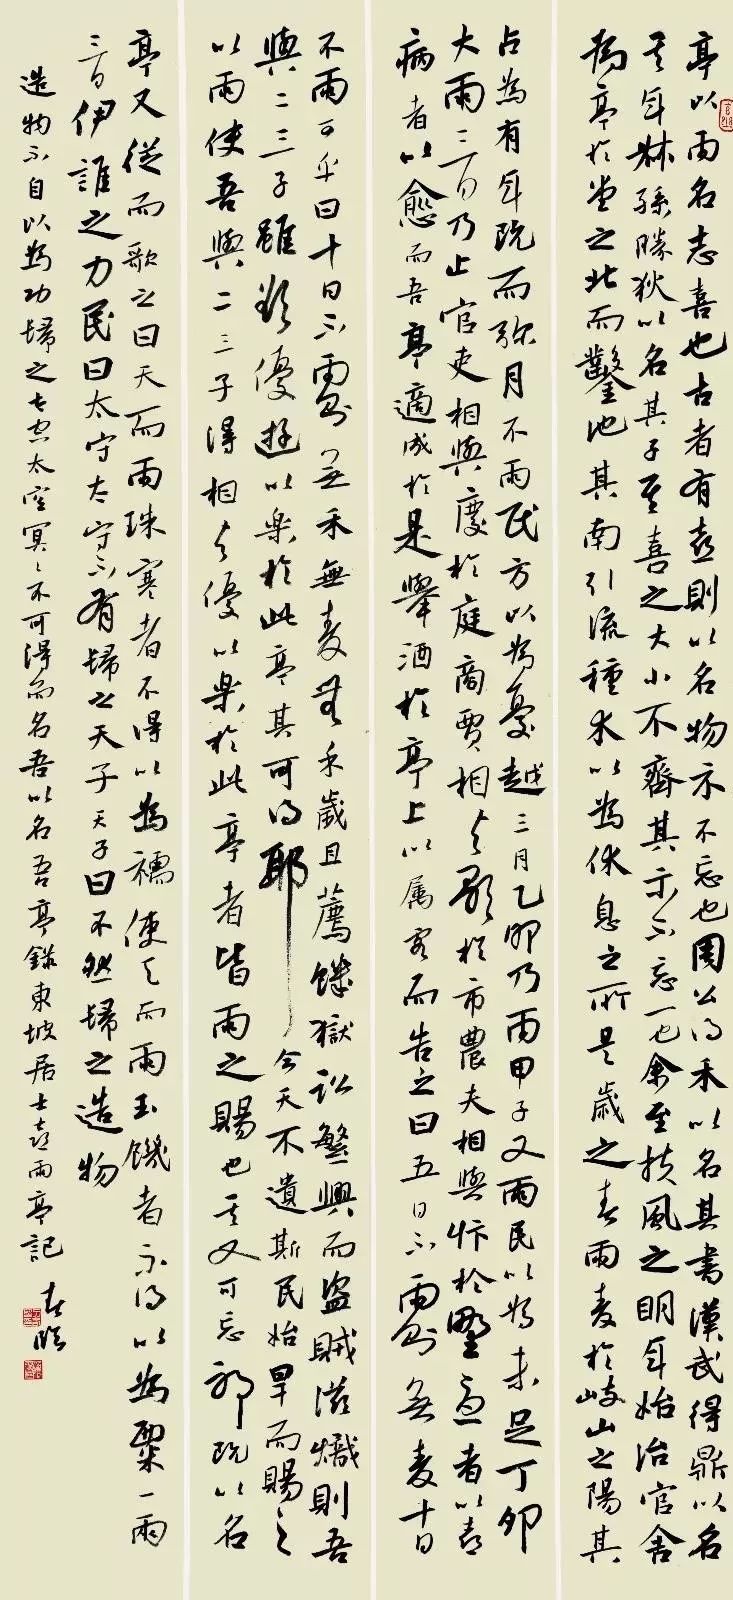 亭以雨名志喜也古者有喜則以名物示不忘也周公得禾以名其書漢武得鼎以名
其年叔孫勝狄以名其子其喜之大小不齊其示不忘一也余至扶風之明年始治官舍
為亭於堂之北而鑿池其南引流種木以為休息之所是歲之春雨麥於岐山之陽其
占為有年既而弥月不雨民方以為憂越三月乙卯乃雨甲子又雨民以為未足丁卯
大雨三日乃止官吏相與慶於庭商賈相与歌於市農夫相與忭於野憂者以喜
病者以愈而吾亭適成於是舉酒於亭上以属客而告之曰五日不雨則無麥十日
不雨可乎曰十日不雨則無禾無麥無禾歲且薦饑獄訟繁興而盜賊滋熾則吾
與二三子雖欲優游以樂於此亭其可得耶今天不遺斯民始旱而賜之
以雨使吾與二三子得相与優以樂於此亭者皆雨之賜也其又可忘耶既以名
亭又從而歌之曰天而雨珠寒者不得以為襦使天而雨玉饑者不得以為粟一雨
三日伊誰之力民曰太守太守不有歸之天子天子曰不然歸之造物
造物不自以為功歸之太空太空冥冥不可得而名吾以名吾亭錄東坡居士喜雨亭記